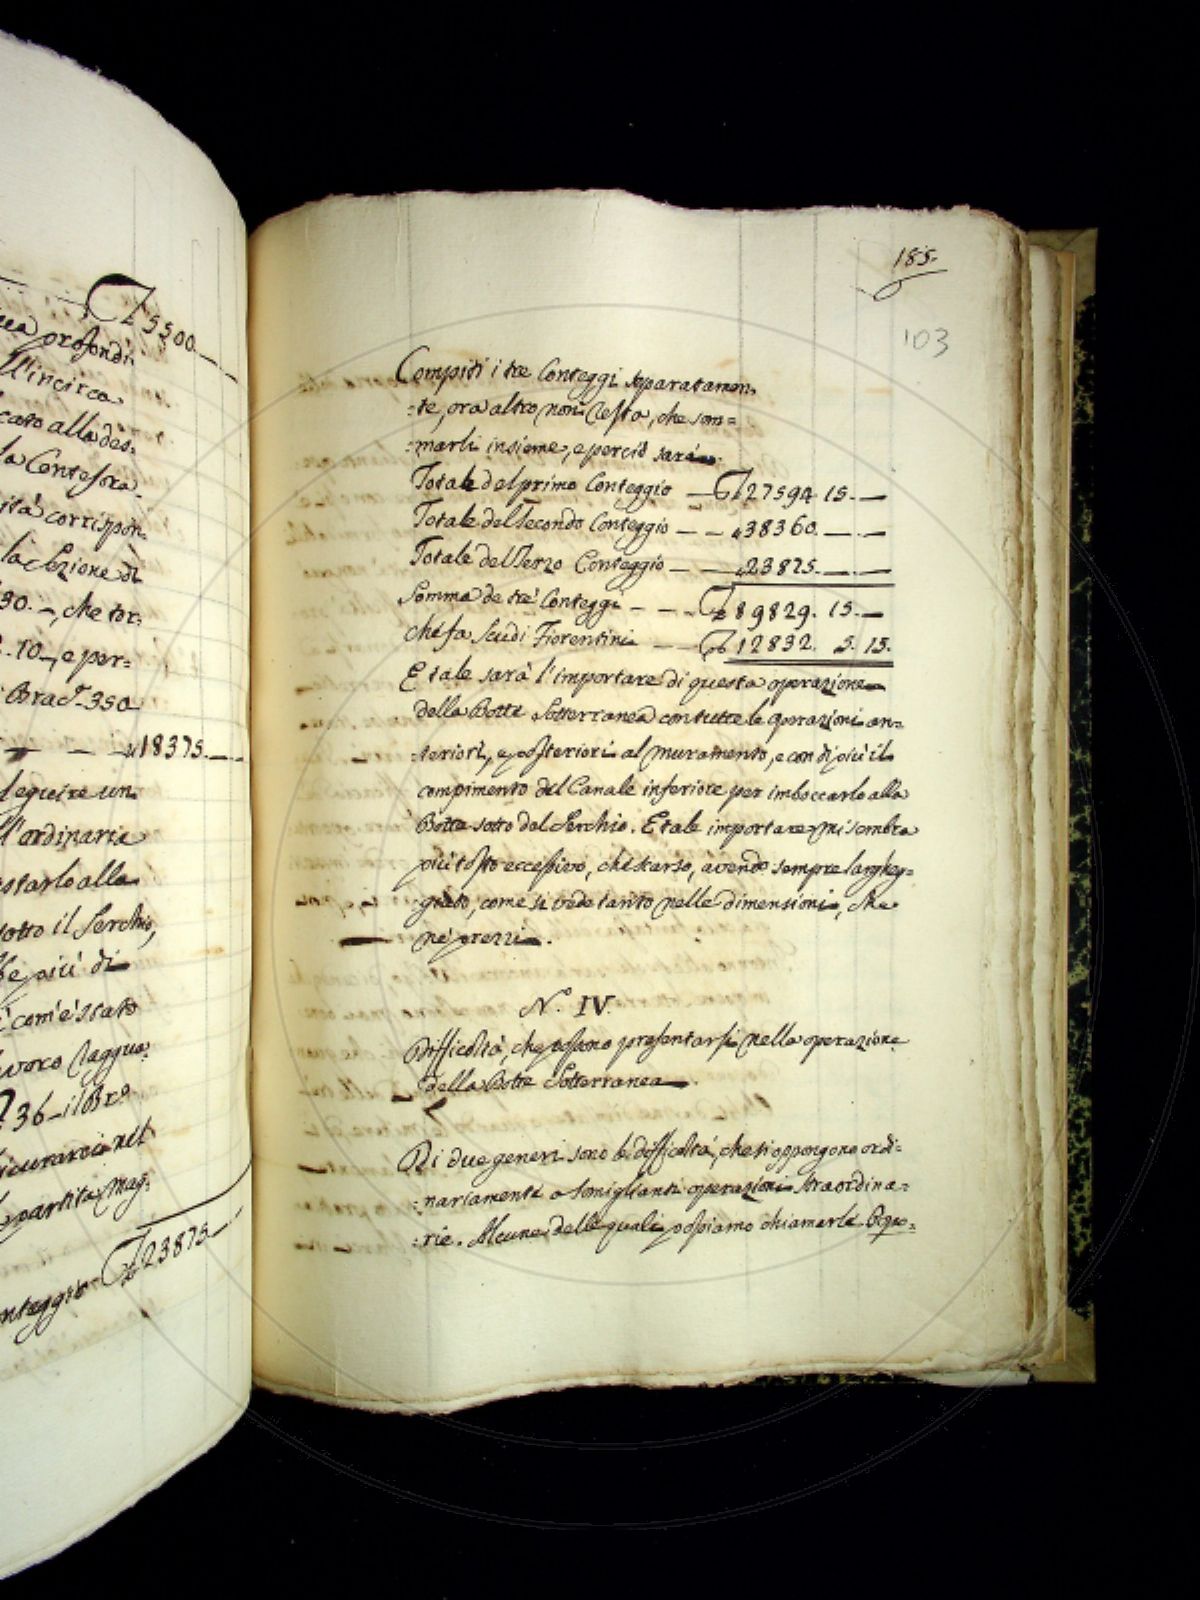 5500.
profondi
all'incirca
cato alla des:
la Contesora
ità corrispon:
la Sezione di
30. —, che tor:
.10—, e per:
Brac. 350
18375.
seguire un
l'ordinaria
starlo alla
sotto il Serchio,
più di
com'è stato
lavoro raggua:
36 — il Br.º
sicurarci nel
partita mag:
23875 —
onteggio
185.
103
Compiti i tre Conteggi separatamen=
:te, ora altro non resta, che som=
:marli insieme, e perciò sarà
Totale del primo Conteggio — 27594. 15. —
Totale del Secondo Conteggio — — 38360. — . —
Totale del Terzo Conteggio — — 23875. — . —
Somma de trè Conteggi — — — 89829. 15. —
che fa Scudi Fiorentini — — 12832. 5. 15.
E tale sarà l'importare di questa operazione
della Botte Sotterranea con tutte le operazioni an=
:teriori, e posteriori al muramento, e con di più il
compimento del Canale inferiore per imboccarlo alla
Botte sotto del Serchio. E tale importare mi sembra
più tosto eccessivo, che scarso, avendo sempre largheg=
:giato, come si vede tanto nelle dimensioni, che
né prezzi.
N.º IV.
Difficoltà, che possono presentarsi nella operazione
della Botte Sotterranea.
Di due generi sono le difficoltà, che si oppongono ordi=
:nariamente a somiglianti operazioni straordina=
:rie. Alcune delle quali possiamo chiamarle